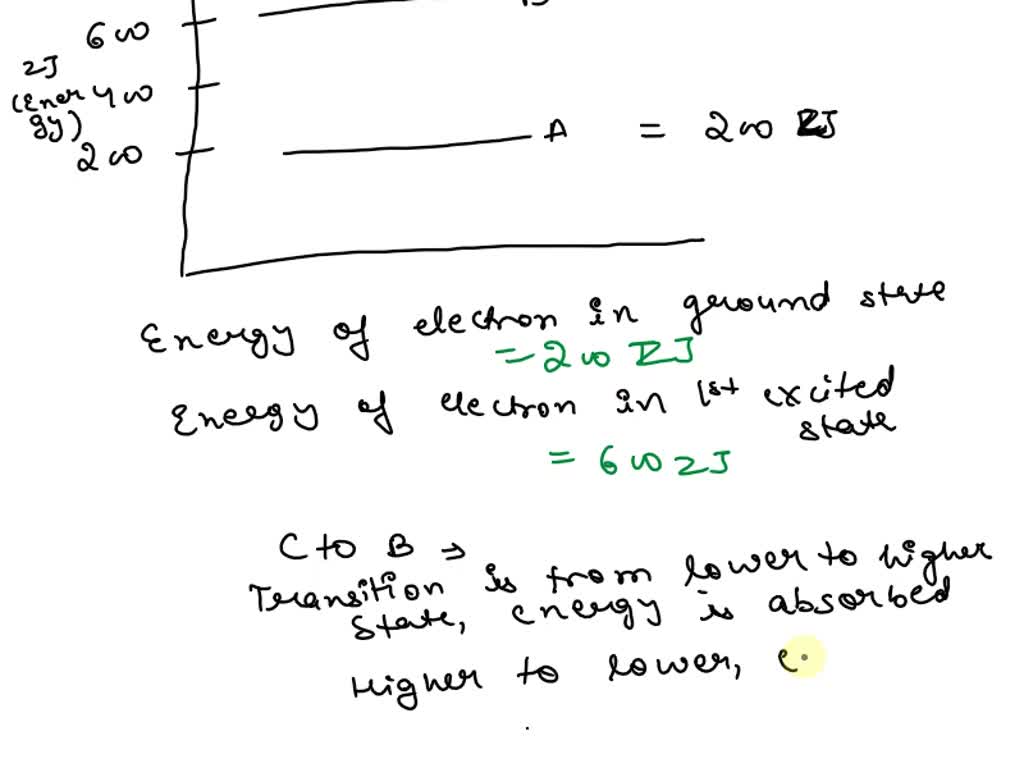 600
zJ
(Ener
gy)
400
200
A = 200 ZJ
Energy of electron in ground state
= 200 ZJ
Energy of electron in 1st excited
state
= 600 zJ
C to B ⇒
Transition is from lower to higher
state, energy is absorbed
Higher to lower, e